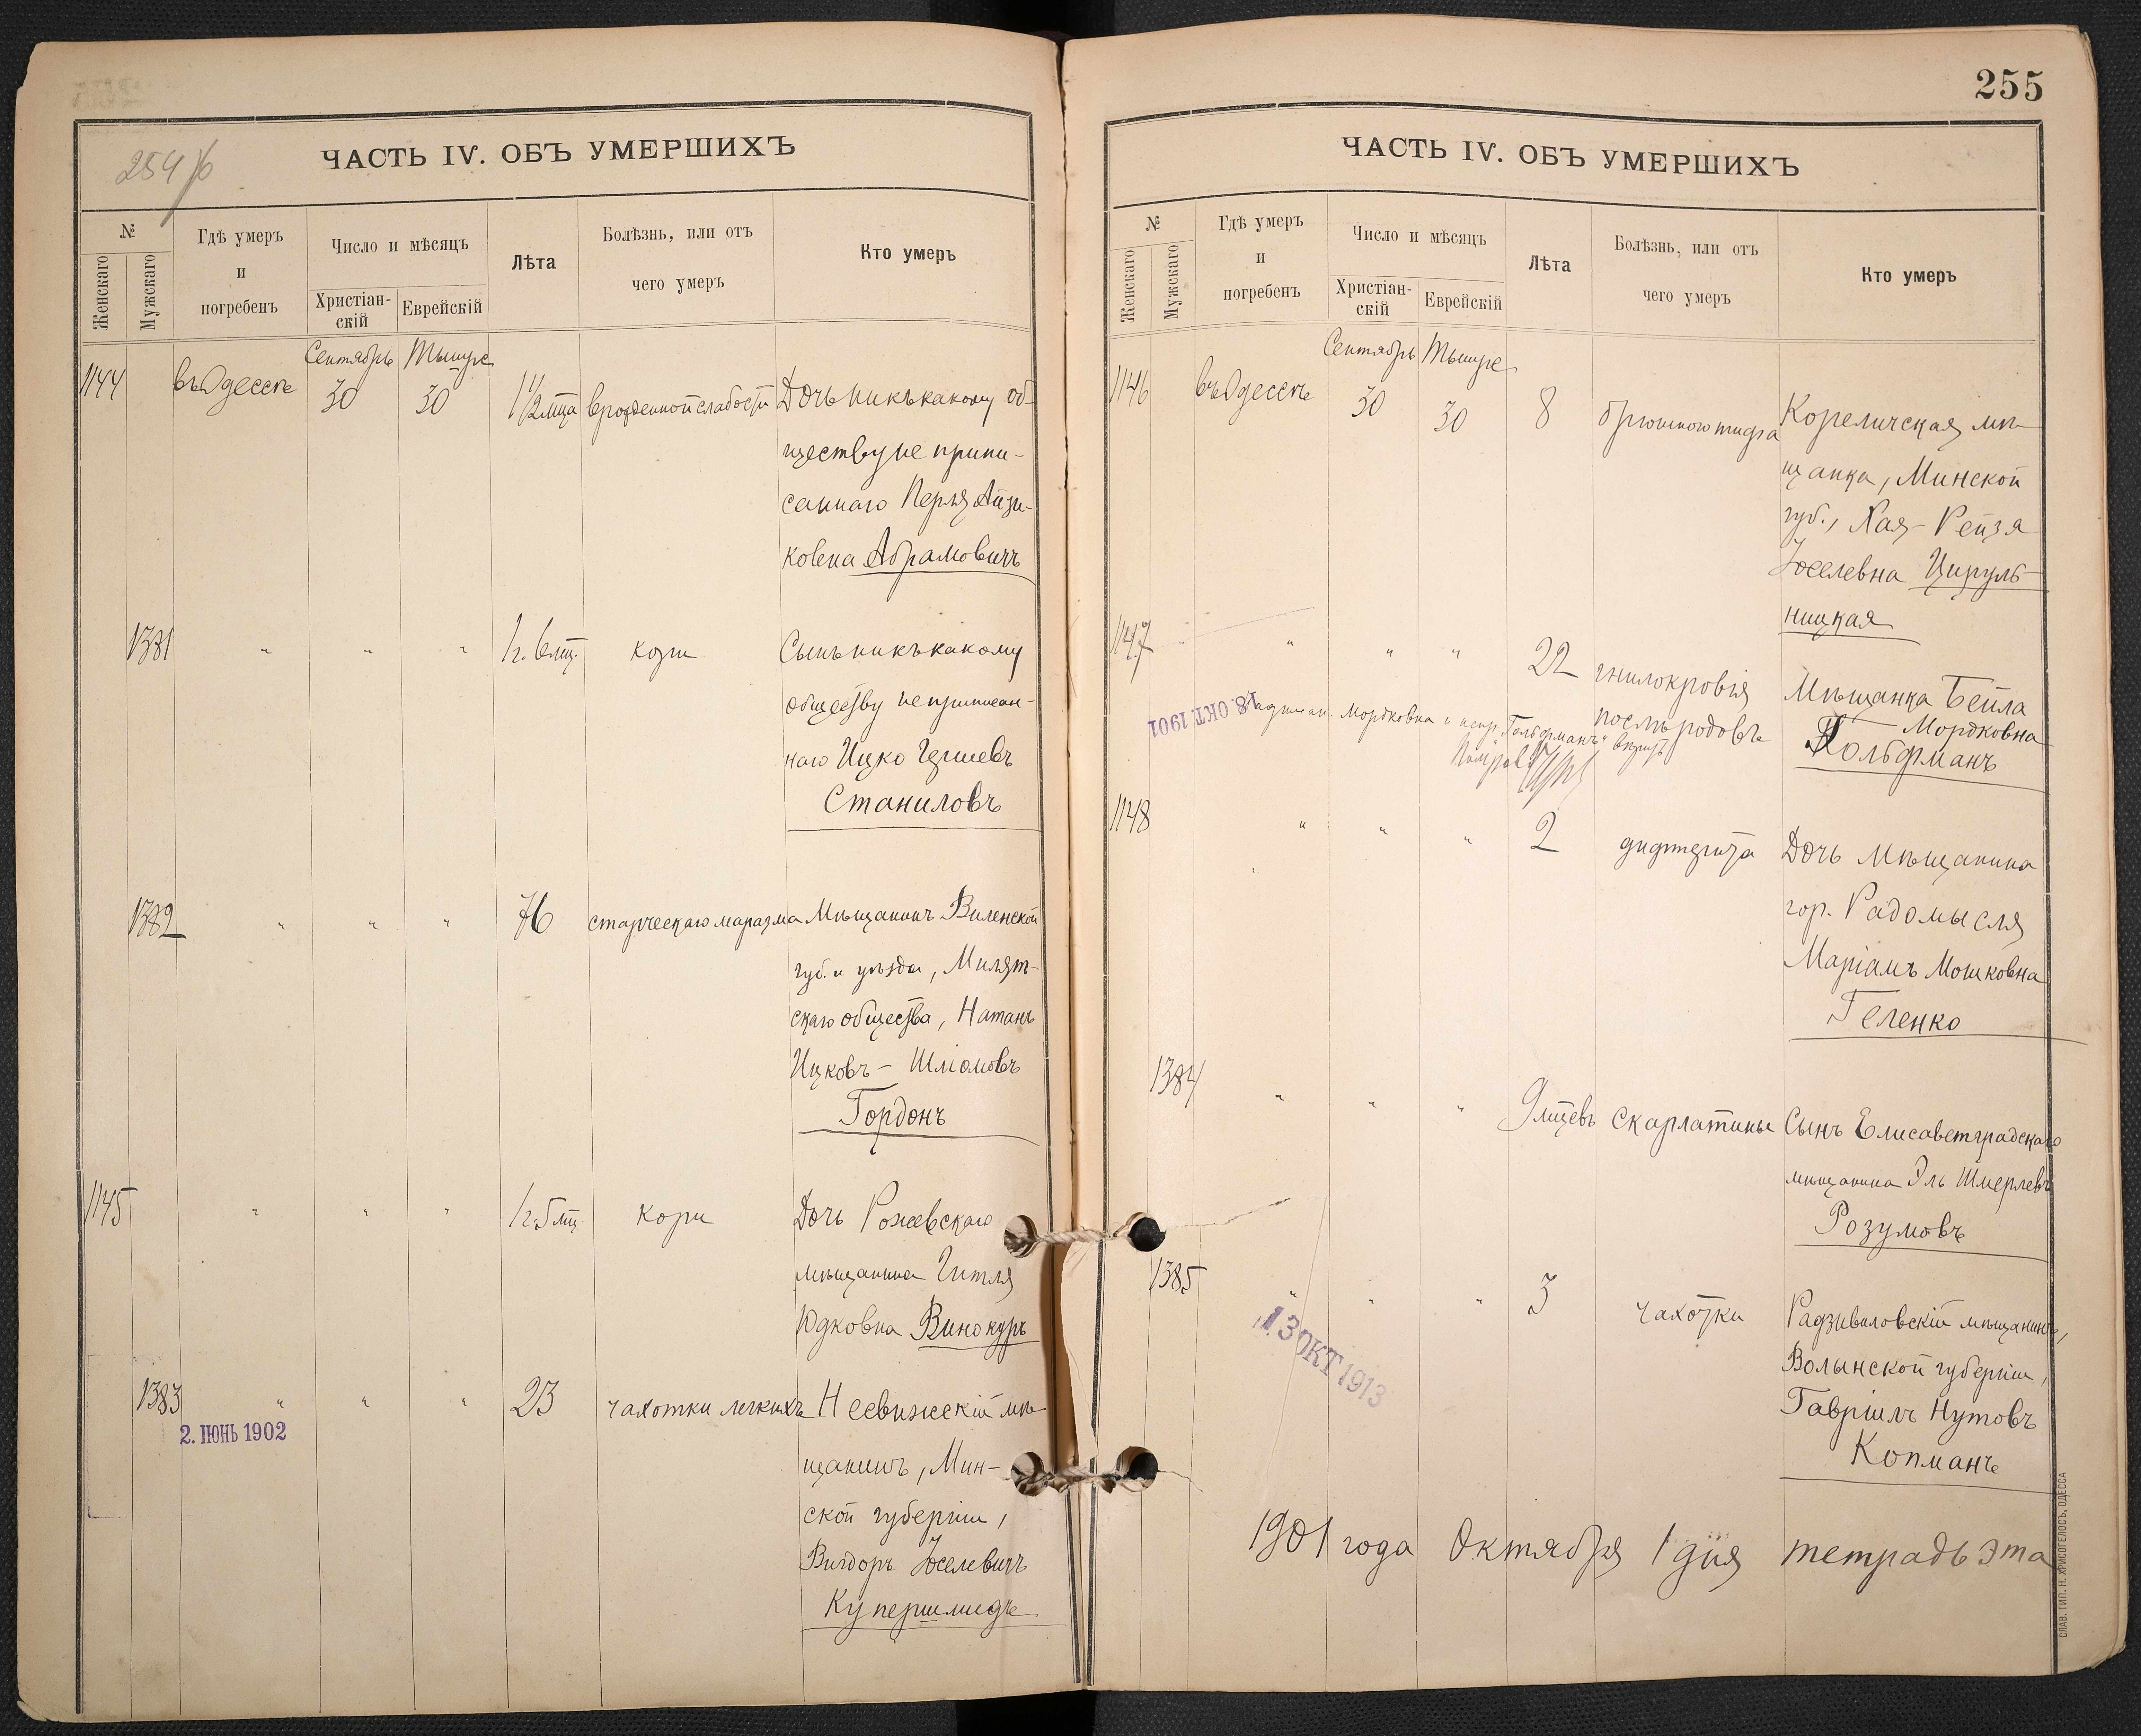 254 об
ЧАСТЬ IV. ОБЪ УМЕРШИХЪ
№
Женскаго
Мужскаго
Гдѣ умеръ
и
погребенъ
Число и мѣсяцъ
Христіан-
скій
Еврейскій
Лѣта
Болѣзнь, или отъ
чего умеръ
Кто умеръ
Сентябрь Тышре
1144 въ Одессѣ 30 30 1 1/2 мца врожденной слабости Дочь никъ какому об-
ществу не припи-
саннаго Перля Айзи-
ковна Абрамовичъ
1381 " " " 1 г. 6 мц. кори Сынъ никъ какому
обществу не приписан-
наго Ицко Гершевъ
Станиловъ
1382 " " " 76 старческаго маразма Мѣщанинъ Виленской
губ. и уѣзда, Милят-
скаго общества, Натанъ
Ицковъ-Шліомовъ
Гордонъ
1145 " " " 1 г. 5 мц. кори Дочь Рожевскаго
мѣщанина Гитля
Юдковна Винокуръ
1383 " " " 23 чахотки легкихъ Несвижскій мѣ-
2. ІЮНЬ 1902
щанинъ, Мин-
ской губерніи,
Вигдоръ Іоселевичъ
Купершмидъ
255
ЧАСТЬ IV. ОБЪ УМЕРШИХЪ
№
Женскаго
Мужскаго
Гдѣ умеръ
и
погребенъ
Число и мѣсяцъ
Христіан-
скій
Еврейскій
Лѣта
Болѣзнь, или отъ
чего умеръ
Кто умеръ
Сентябрь Тышре
1146 въ Одессѣ 30 30 8 брюшного тифа Кореличская мѣ-
щанка, Минской
губ., Хая-Рейзя
Іоселевна Цируль-
ницкая
1147 " " " 22 гнилокровія Мѣщанка Бейла
послѣ родовъ Мордковна
Гольфманъ
18. ОКТ. 1901
Мордковна и испр. "Гольфманъ" вѣрно
1148 " " " 2 дифтерита Дочь мѣщанина
гор. Радомысля
Маріамъ Мошковна
Геленко
1384 " " " 9 мцевъ скарлатины Сынъ Елисаветградскаго
мѣщанина Эль Шмерлевъ
Розумовъ
1385 " " " 3 чахотки Радзивиловскій мѣщанинъ,
13 ОКТ 1913
Волынской губерніи,
Гавріилъ Нутовъ
Копманъ
1901 года Октября 1 дня тетрадь эта
СЛАВ. ТИП. Н. ХРИСОГЕЛОСЪ, ОДЕССА